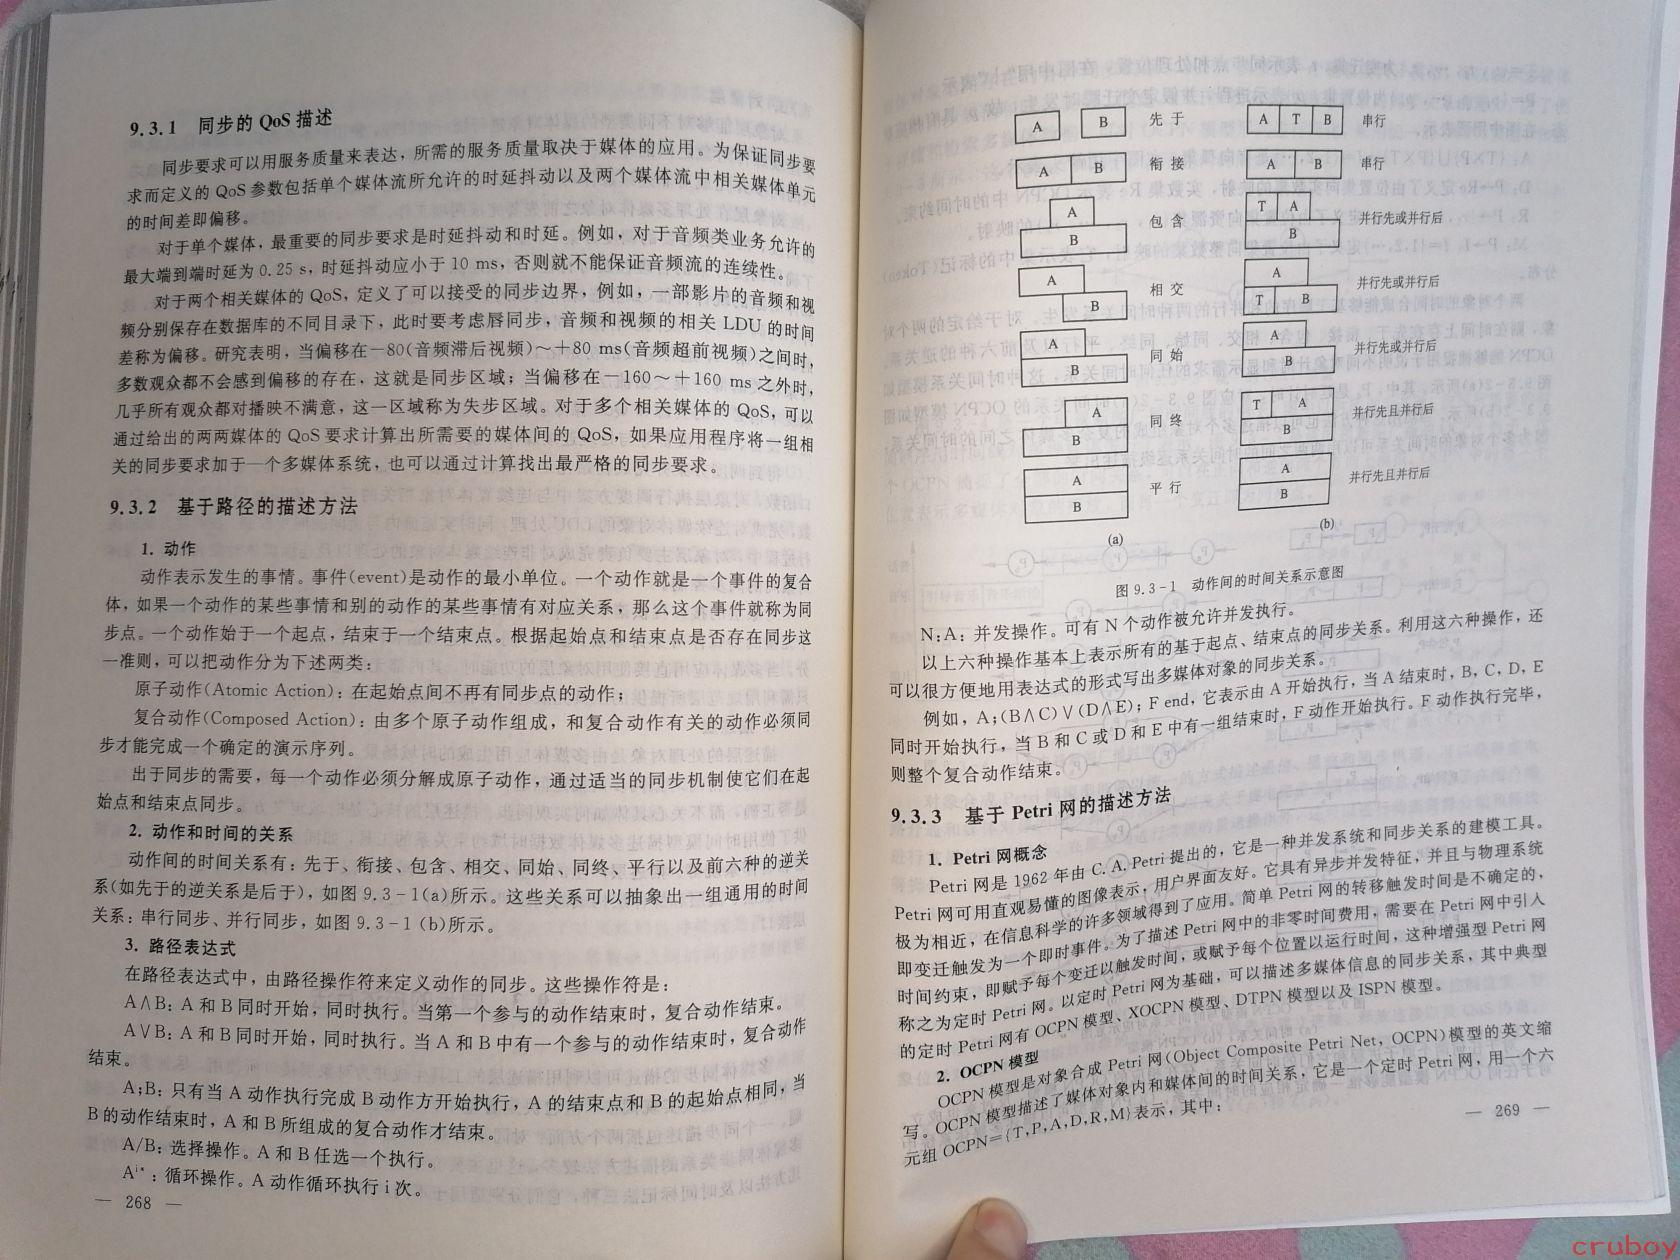 9.3.1 同步的 QoS 描述
同步要求可以用服务质量来表达，所需的服务质量取决于媒体的应用。为保证同步要
求而定义的 QoS 参数包括单个媒体流所允许的时延抖动以及两个媒体流中相关媒体单元
的时间差即偏移。
对于单个媒体，最重要的同步要求是时延抖动和时延。例如，对于音频类业务允许的
最大端到端时延为 0.25 s，时延抖动应小于 10 ms，否则就不能保证音频流的连续性。
对于两个相关媒体的 QoS，定义了可以接受的同步边界，例如，一部影片的音频和视
频分别保存在数据库的不同目录下，此时要考虑唇同步，音频和视频的相关 LDU 的时间
差称为偏移。研究表明，当偏移在－80(音频滞后视频)～＋80 ms(音频超前视频)之间时，
多数观众都不会感到偏移的存在，这就是同步区域；当偏移在－160～＋160 ms 之外时，
几乎所有观众都对播映不满意，这一区域称为失步区域。对于多个相关媒体的 QoS，可以
通过给出的两两媒体的 QoS 要求计算出所需要的媒体间的 QoS，如果应用程序将一组相
关的同步要求加于一个多媒体系统，也可以通过计算找出最严格的同步要求。
9.3.2 基于路径的描述方法
1. 动作
动作表示发生的事情。事件(event)是动作的最小单位。一个动作就是一个事件的复合
体，如果一个动作的某些事情和别的动作的某些事情有对应关系，那么这个事件就称为同
步点。一个动作始于一个起点，结束于一个结束点。根据起始点和结束点是否存在同步这
一准则，可以把动作分为下述两类：
原子动作(Atomic Action)：在起始点间不再有同步点的动作；
复合动作(Composed Action)：由多个原子动作组成，和复合动作有关的动作必须同
步才能完成一个确定的演示序列。
出于同步的需要，每一个动作必须分解成原子动作，通过适当的同步机制使它们在起
始点和结束点同步。
2. 动作和时间的关系
动作间的时间关系有：先于、衔接、包含、相交、同始、同终、平行以及前六种的逆关
系(如先于的逆关系是后于)，如图 9.3-1(a)所示。这些关系可以抽象出一组通用的时间
关系：串行同步、并行同步，如图 9.3-1(b)所示。
3. 路径表达式
在路径表达式中，由路径操作符来定义动作的同步。这些操作符是：
A∧B：A 和 B 同时开始，同时执行。当第一个参与的动作结束时，复合动作结束。
A∨B：A 和 B 同时开始，同时执行。当 A 和 B 中有一个参与的动作结束时，复合动作
结束。
A;B：只有当 A 动作执行完成 B 动作方开始执行，A 的结束点和 B 的起始点相同，当
B 的动作结束时，A 和 B 所组成的复合动作才结束。
A/B：选择操作。A 和 B 任选一个执行。
Aⁱ*：循环操作。A 动作循环执行 i 次。
— 268 —
A B 先于 A T B 串行
A B 衔接 A B 串行
A T A
B 包含 B 并行先或并行后
A 相交 A 并行先或并行后
B T B
A 同始 A 并行先或并行后
B B
A 同终 T A 并行先且并行后
B B
A 平行 A 并行先且并行后
B B
(a) (b)
图 9.3-1 动作间的时间关系示意图
N:A：并发操作。可有 N 个动作被允许并发执行。
以上六种操作基本上表示所有的基于起点、结束点的同步关系。利用这六种操作，还
可以很方便地用表达式的形式写出多媒体对象的同步关系。
例如，A;(B∧C)∨(D∧E)；F end，它表示由 A 开始执行，当 A 结束时，B，C，D，E
同时开始执行，当 B 和 C 或 D 和 E 中有一组结束时，F 动作开始执行。F 动作执行完毕，
则整个复合动作结束。
9.3.3 基于 Petri 网的描述方法
1. Petri 网概念
Petri 网是 1962 年由 C. A. Petri 提出的，它是一种并发系统和同步关系的建模工具。
Petri 网可用直观易懂的图像表示，用户界面友好。它具有异步并发特征，并且与物理系统
极为相近，在信息科学的许多领域得到了应用。简单 Petri 网的转移触发时间是不确定的，
即变迁触发为一个即时事件。为了描述 Petri 网中的非零时间费用，需要在 Petri 网中引入
时间约束，即赋予每个变迁以触发时间，或赋予每个位置以运行时间，这种增强型 Petri 网
称之为定时 Petri 网。以定时 Petri 网为基础，可以描述多媒体信息的同步关系，其中典型
的定时 Petri 网有 OCPN 模型、XOCPN 模型、DTPN 模型以及 ISPN 模型。
2. OCPN 模型
OCPN 模型是对象合成 Petri 网(Object Composite Petri Net，OCPN)模型的英文缩
写。OCPN 模型描述了媒体对象内和媒体间的时间关系，它是一个定时 Petri 网，用一个六
元组 OCPN={T,P,A,D,R,M}表示，其中：
— 269 —
cruboy